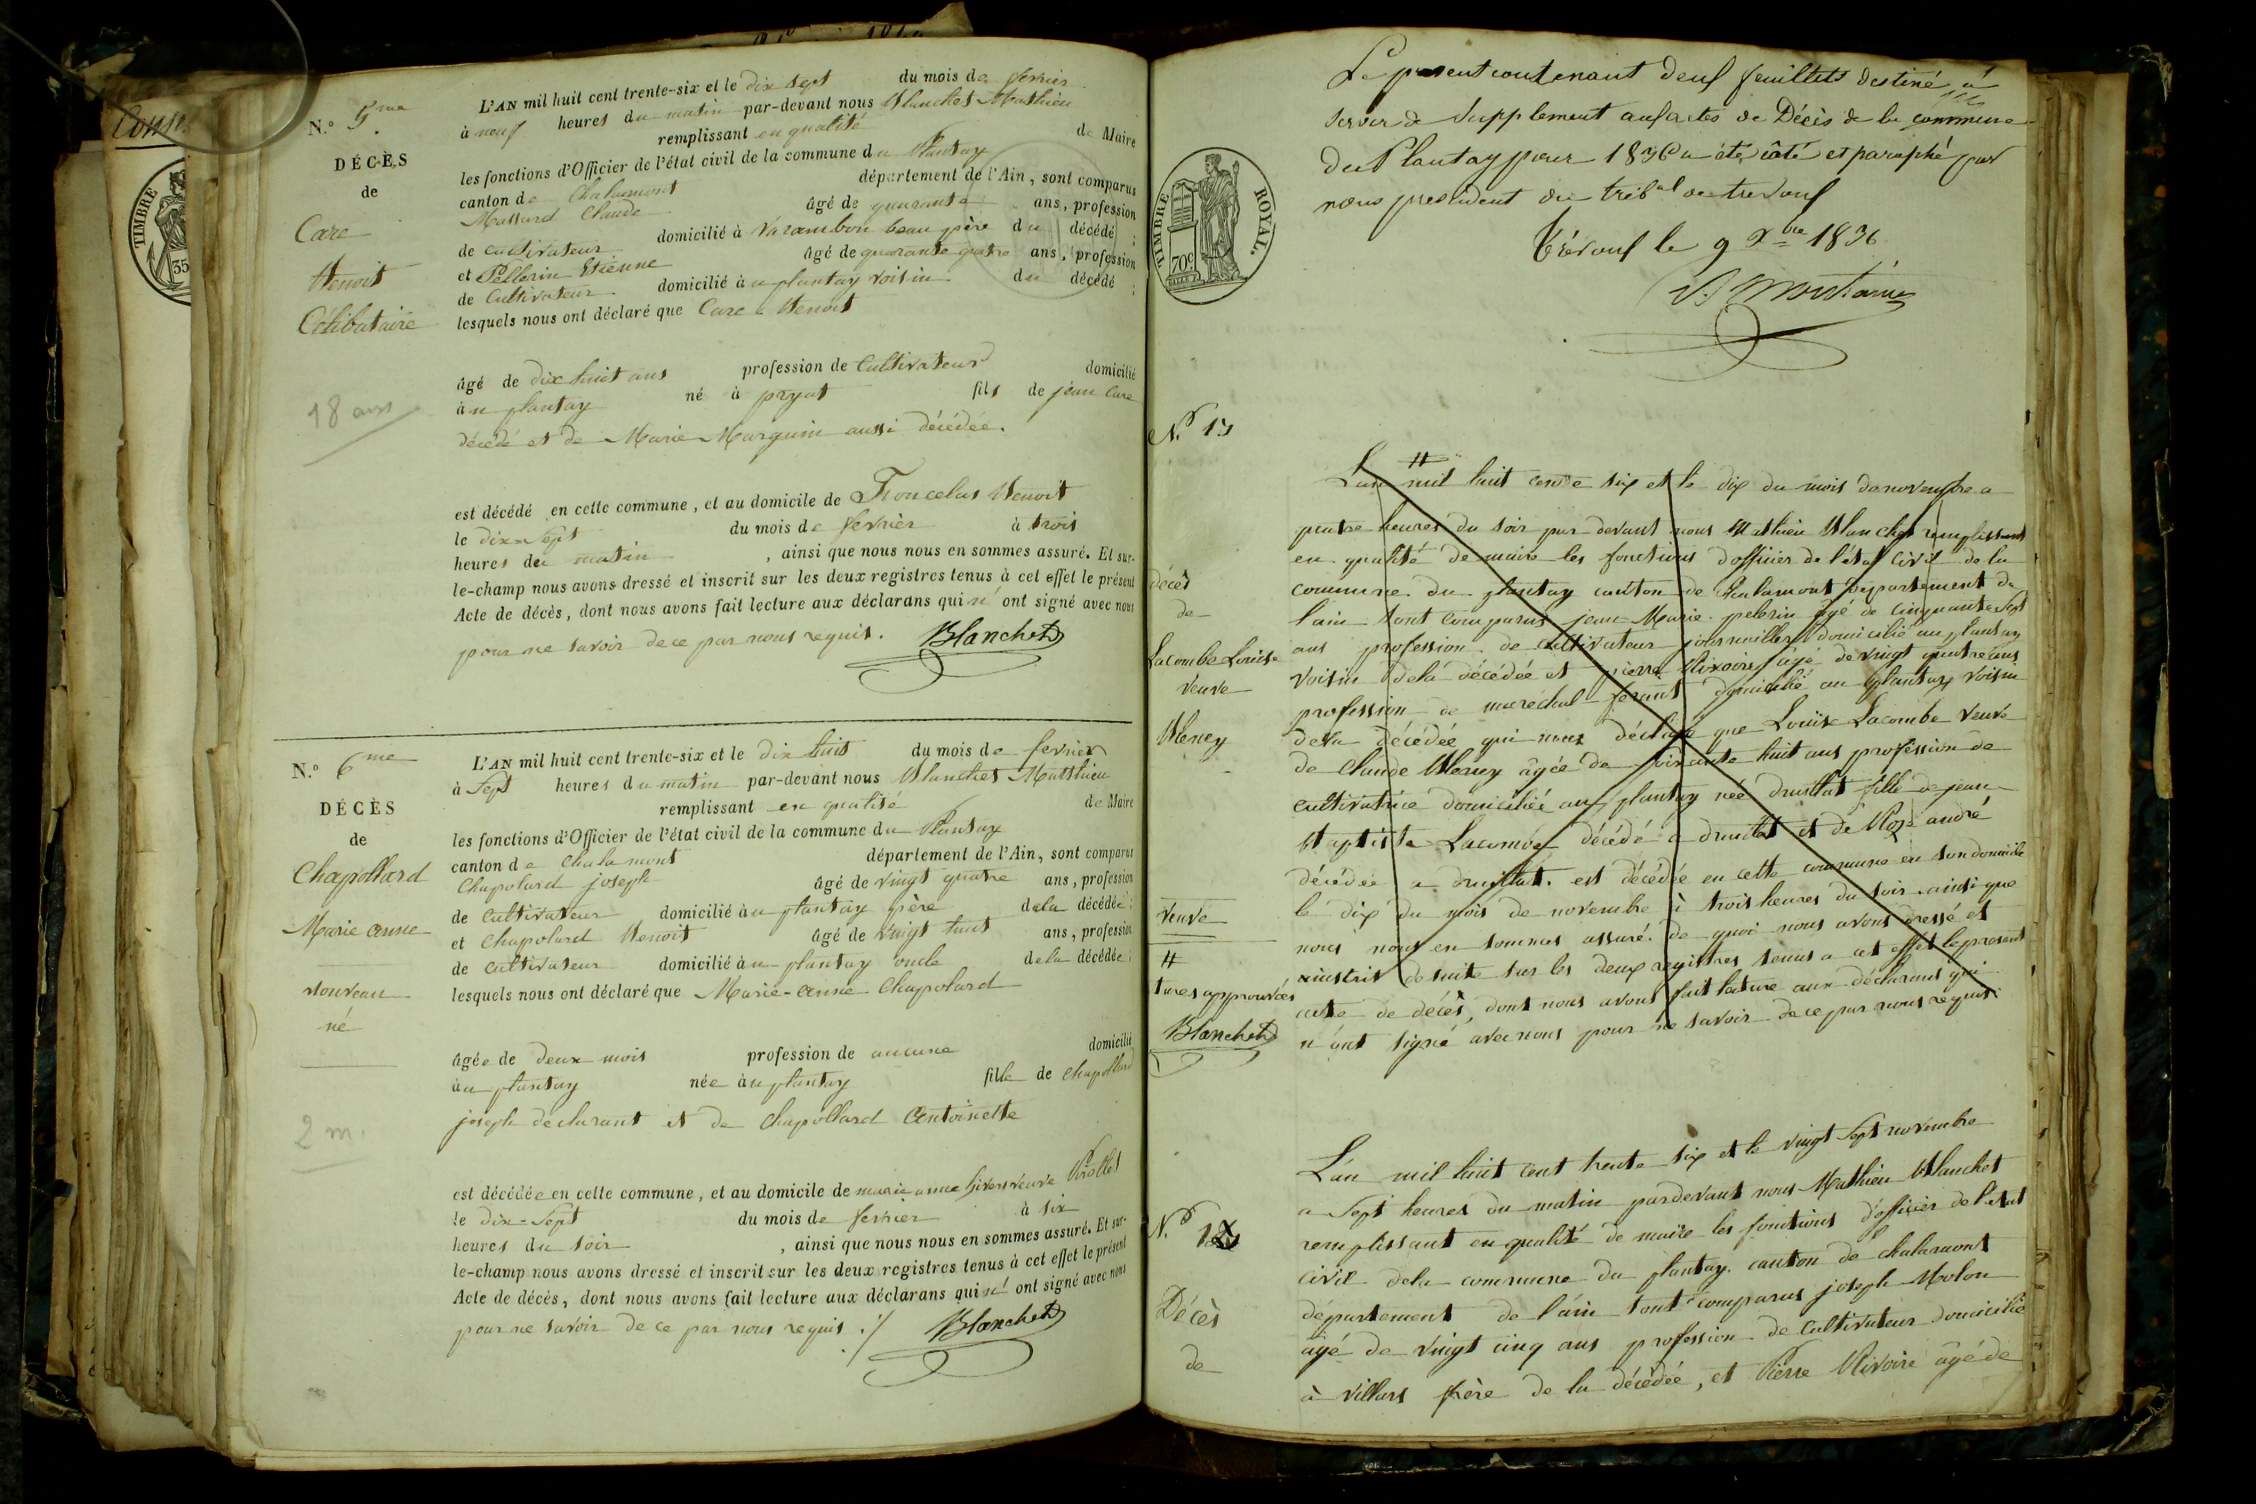 Cons
TIMBRE
35
N.° 5me
DÉCÈS
de
Care
Benoit
Célibataire
18 ans
L'AN mil huit cent trente-six et le dix sept du mois de fevrier
à neuf heures du matin par-devant nous Blanchet Mathieu
remplissant en qualité de Maire
les fonctions d'Officier de l'état civil de la commune du Plantay
canton de Chalamont département de l'Ain, sont comparus
Massard Claude âgé de quarante ans, profession
de cultivateur domicilié à Varambon beau père du décédé ;
et Pellerin Etienne âgé de quarante quatre ans, profession
de Cultivateur domicilié à u plantay voisin du décédé ;
lesquels nous ont déclaré que Care Benoit
âgé de dix huit ans profession de Cultivateur domicilié
à u plantay né à priay fils de jean Care
décédé et de Marie Marguin aussi décédée.
est décédé en cette commune, et au domicile de Troncelas Benoit
le dix-Sept du mois de fevrier à trois
heures du matin, ainsi que nous nous en sommes assuré. Et sur-
le-champ nous avons dressé et inscrit sur les deux registres tenus à cet effet le présent
Acte de décès, dont nous avons fait lecture aux déclarans qui n' ont signé avec nous
pour ne savoir de ce par nous requis. Blanchet
N.° 6me
DÉCÈS
de
Chapollard
Marie anne
nouveau
né
2 m.
L'AN mil huit cent trente-six et le dix huit du mois de fevrier
à Sept heures du matin par-devant nous Blanchet Matthieu
remplissant en qualité de Maire
les fonctions d'Officier de l'état civil de la commune du Plantay
canton de chalamont département de l'Ain, sont comparus
Chapolard joseph âgé de vingt quatre ans, profession
de cultivateur domicilié à u plantay père dela décédée ;
et Chapolard Benoit âgé de vingt huit ans, profession
de cultivateur domicilié à u plantay oncle dela décédée ;
lesquels nous ont déclaré que Marie-anne Chapolard
âgée de deux mois profession de aucune domicilié
à u plantay née à u plantay fille de Chapollard
joseph déclarant et de Chapollard Antoinette
est décédée en cette commune, et au domicile de marie anne veuve
le dix-Sept du mois de fevrier à six
heures du soir, ainsi que nous nous en sommes assuré. Et sur-
le-champ nous avons dressé et inscrit sur les deux registres tenus à cet effet le présent
Acte de décès, dont nous avons fait lecture aux déclarans qui n' ont signé avec nous
pour ne savoir de ce par nous requis ./ Blanchet
TIMBRE ROYAL.
70c
Le present contenant deux feuillets destiné à
servir de Supplement aux actes de Décès de la commune
du Plantay pour 1836 a été côté et paraphé par
nous president du tribal de trevoux
Trévoux le 9 Xbre 1836
N.° 13
décès
de
Lacombe Louise
veuve
Bleney
veuve
#
tures approuvées
Blanchet
#
L'an mil huit cent te six et le dix du mois de novembre a
quatre heures du soir par devant nous Mathieu Blanchet remplissant
en qualité de maire les fonctions d'officier de l'état civil de la
commune du plantay canton de Chalamont département de
l'ain sont comparus jean Marie pelerin âgé de cinquante Sept
ans profession de cultivateur journaillier domicilié au plantay
voisin dela décédée et pierre Rivoire âgé de vingt quatre ans
profession de marechal ferant domicilié au plantay voisin
dela décédée qui nous déclaré que Louise Lacombe veuve
de Claude Bleney âgée de soixante huit ans profession de
cultivatrice domiciliée au plantay née druillat fille de jean
Baptiste Lacombe décédé a druillat et de Rose andré
décédée a druillat. est décédée en cette commune en son domicile
le dix du mois de novembre à trois heures du soir ainsi que
nous nous en sommes assuré. de quoi nous avons dressé et
inscrit desuite sur les deux registres tenus a cet effet le present
acte de décès, dont nous avons fait lecture aux déclarans qui
n'ont signé avec nous pour ne savoir de ce par nous réquis.
N.° 1
Décès
de
L'an mil huit cent trente six et le vingt Sept novembre
a Sept heures du matin pardevant nous Mathieu Blanchet
remplissant en qualité de maire les fonctions d'officier de l'etat
civil dela commune du plantay. canton de chalamont
département de l'ain sont comparus joseph Molon
âgé de vingt cinq ans profession de Cultivateur domicilié
à villars frère de la décédée, et Pierre Rivoire âgé de